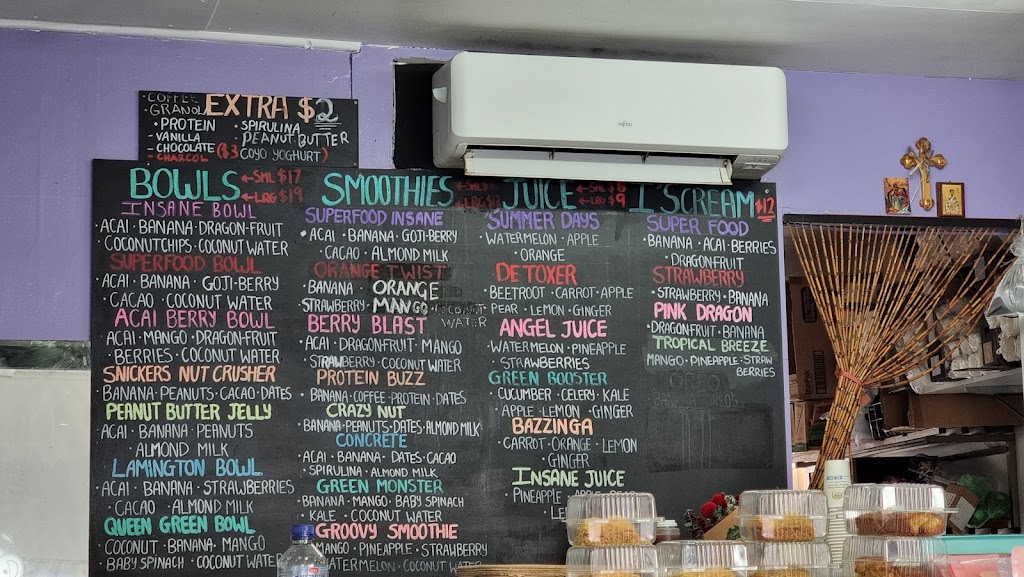 · COFFEE
· GRANOLA
EXTRA $2
· PROTEIN
- VANILLA
- CHOCOLATE
- CHARCOL
· SPIRULINA
· PEANUT BUTTER
($3 COYO YOGHURT)
FUJITSU
BOWLS
SML $17
LRG $19
INSANE BOWL
· ACAI · BANANA · DRAGON-FRUIT
COCONUTCHIPS · COCONUT WATER
SUPERFOOD BOWL
· ACAI · BANANA · GOTI-BERRY
CACAO · COCONUT WATER
ACAI BERRY BOWL
· ACAI · MANGO · DRAGON-FRUIT
· BERRIES · COCONUT WATER
SNICKERS NUT CRUSHER
BANANA · PEANUTS · CACAO · DATES
PEANUT BUTTER JELLY
· ACAI · BANANA · PEANUTS
· ALMOND MILK
LAMINGTON BOWL
· ACAI · BANANA · STRAWBERRIES
· CACAO · ALMOND MILK
QUEEN GREEN BOWL
COCONUT · BANANA · MANGO
· BABY SPINACH · COCONUT WATER
SMOOTHIES
SML
LRG
SUPERFOOD INSANE
· ACAI · BANANA · GOTI-BERRY
CACAO · ALMOND MILK
ORANGE TWIST
BANANA · ORANGE
STRAWBERRY · MANGO · COCONUT
WATER
BERRY BLAST
ACAI · DRAGONFRUIT · MANGO
STRAWBERRY · COCONUT WATER
PROTEIN BUZZ
· BANANA · COFFEE · PROTEIN · DATES
CRAZY NUT
BANANA · PEANUTS · DATES · ALMOND MILK
CONCRETE
ACAI · BANANA · DATES · CACAO
· SPIRULINA · ALMOND MILK
GREEN MONSTER
BANANA · MANGO · BABY SPINACH
· KALE · COCONUT WATER
GROOVY SMOOTHIE
MANGO · PINEAPPLE · STRAWBERRY
WATERMELON · COCONUT WATER
JUICE
SML
LRG $9
SUMMER DAYS
WATERMELON · APPLE
· ORANGE
DETOXER
· BEETROOT · CARROT · APPLE
PEAR · LEMON · GINGER
ANGEL JUICE
WATERMELON · PINEAPPLE
· STRAWBERRIES
GREEN BOOSTER
CUCUMBER · CELERY · KALE
APPLE · LEMON · GINGER
BAZZINGA
· CARROT · ORANGE · LEMON
· GINGER
INSANE JUICE
· PINEAPPLE · APPLE
I'SCREAM $12
SUPER FOOD
· BANANA · ACAI · BERRIES
· DRAGON-FRUIT
STRAWBERRY
· STRAWBERRY · BANANA
PINK DRAGON
· DRAGONFRUIT · BANANA
TROPICAL BREEZE
MANGO · PINEAPPLE · STRAW
BERRIES
OREO